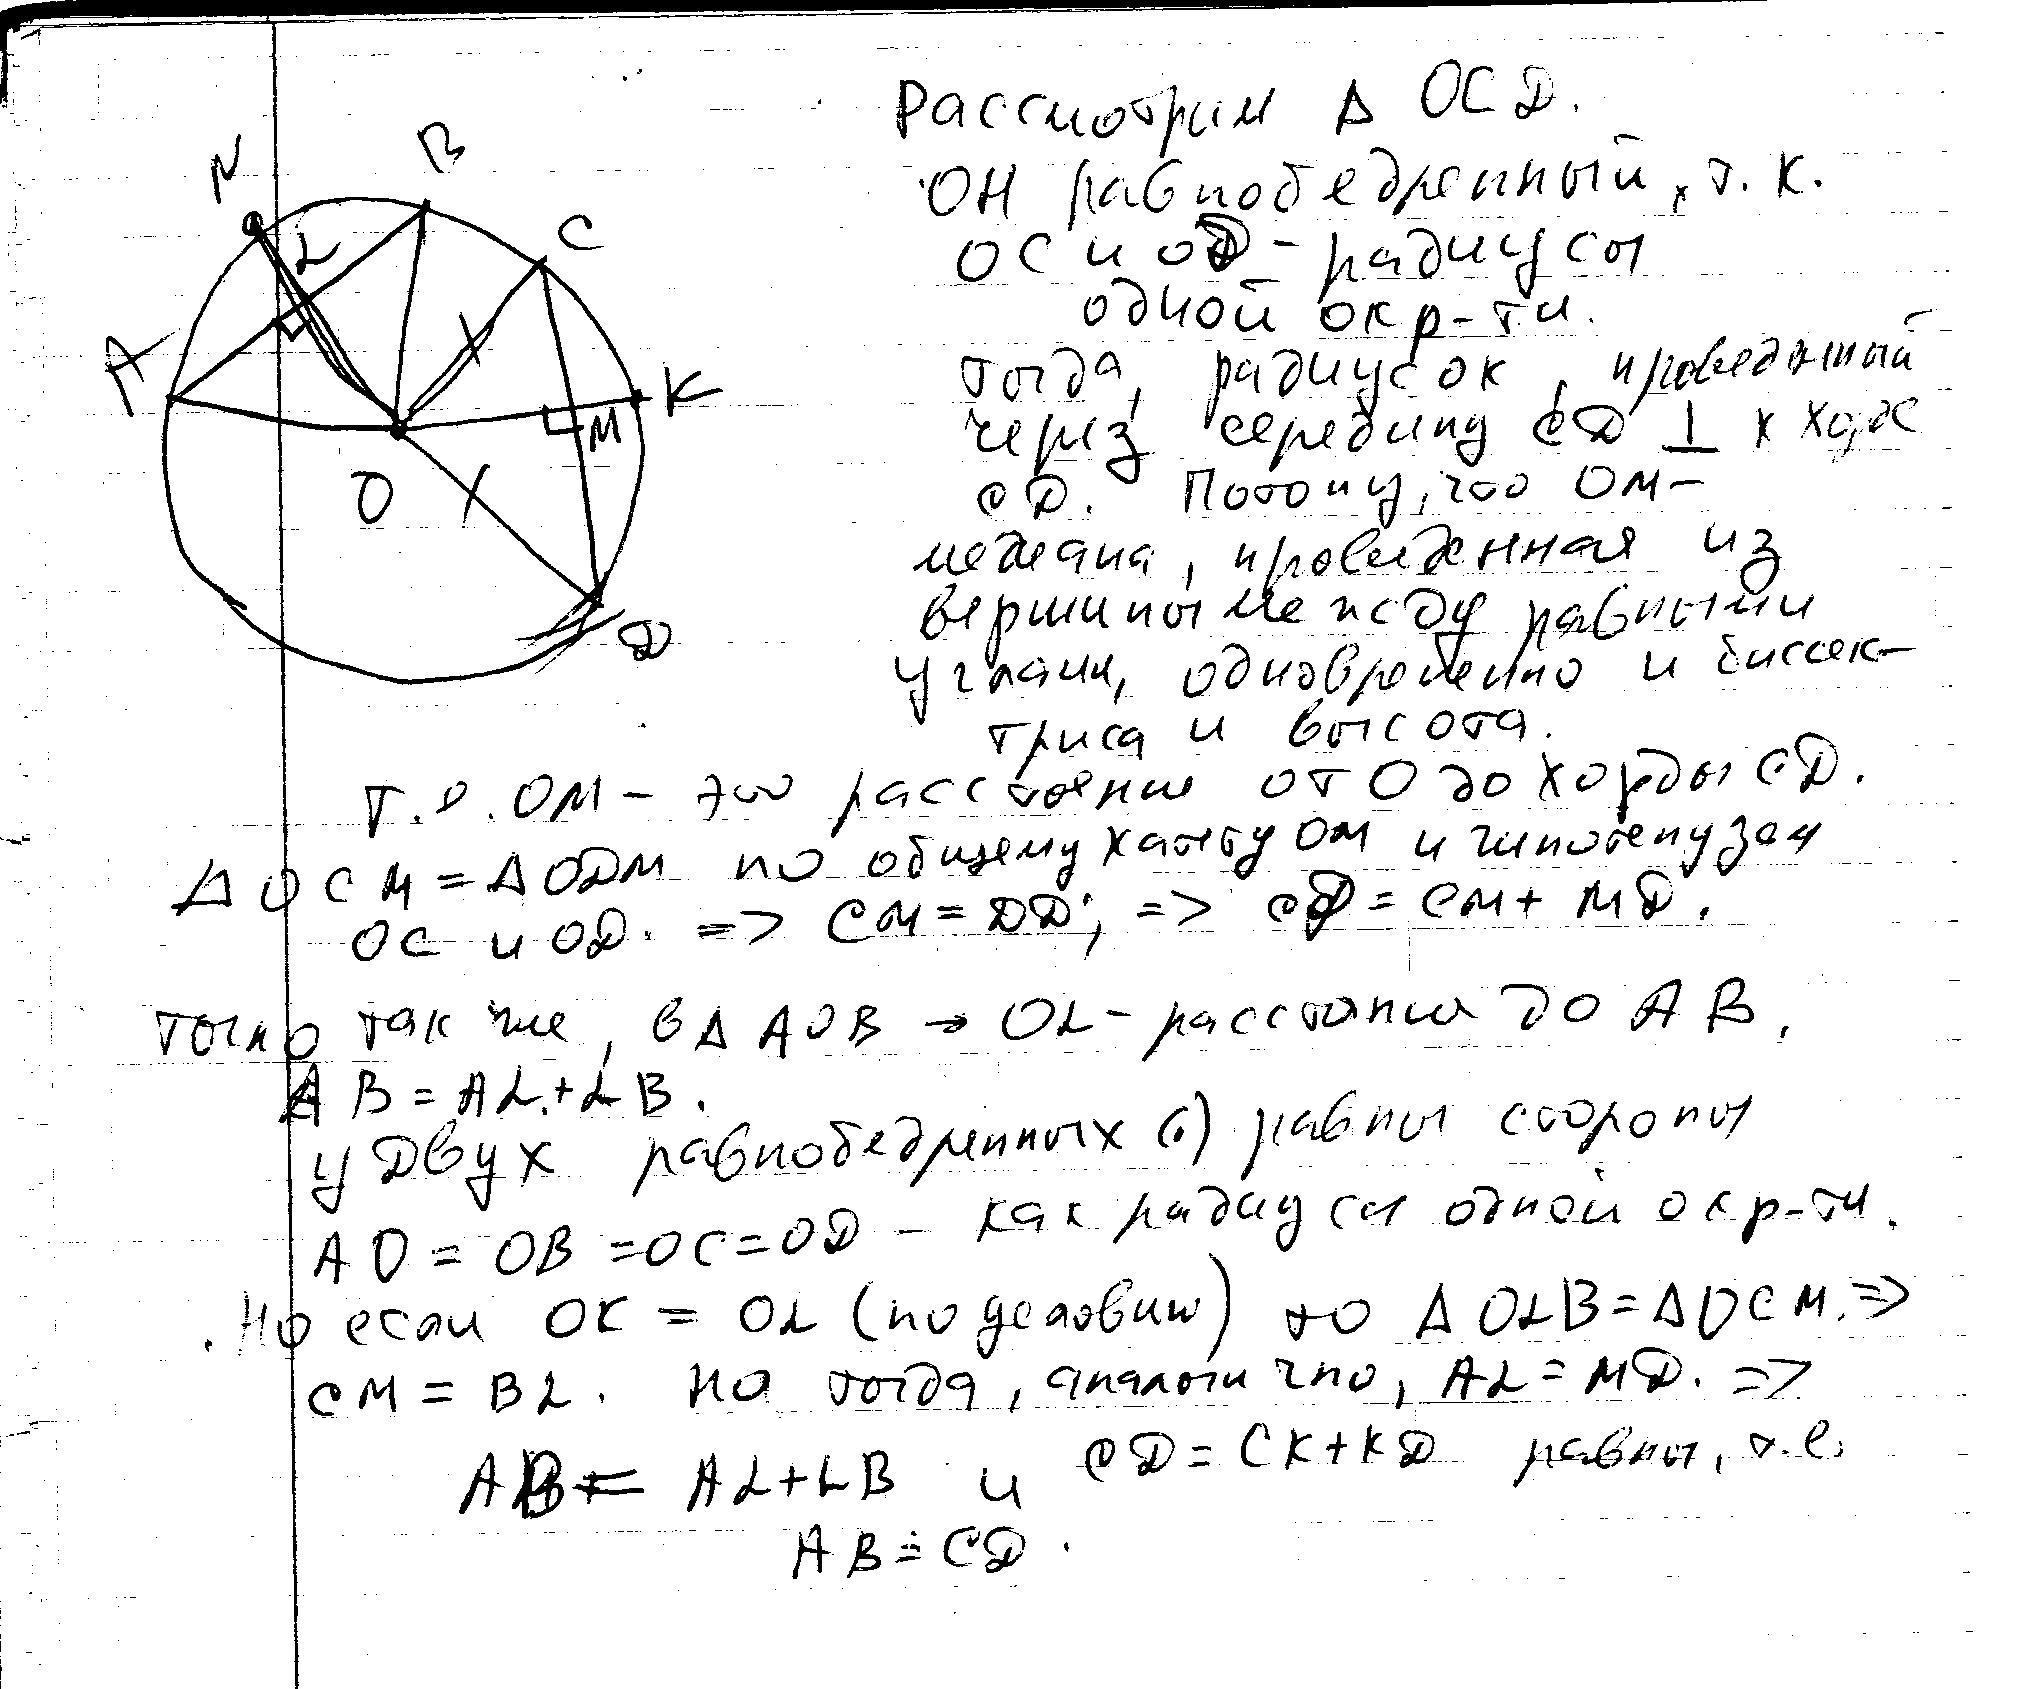 N
B
C
L
A
K
M
O
D
Рассмотрим Δ OCD.
ОН равнобедренный, т. к.
OC и OD - радиусы
одной окр-ти.
тогда, радиус OK, проведенный
через середину CD ⊥ к хорде
CD. Потому, что OM -
медиана, проведенная из
вершины между равными
углами, одновременно и биссек-
триса и высота.
Т.о. OM - это расстояние от O до хорды CD.
Δ OCM = Δ ODM по общему катету OM и гипотенузам
OC и OD. => CM = DD; => CD = CM + MD.
точно так же, в Δ AOB → OL - расстояние до AB,
AB = AL + LB.
У двух равнобедренных равны стороны
AO = OB = OC = OD - как радиусы одной окр-ти.
Но если OK = OL (по условию) то Δ OLB = Δ OCM. =>
CM = BL. Но тогда, аналогично, AL = MD. =>
AB = AL + LB и CD = CK + KD равны, т.е.
AB = CD.